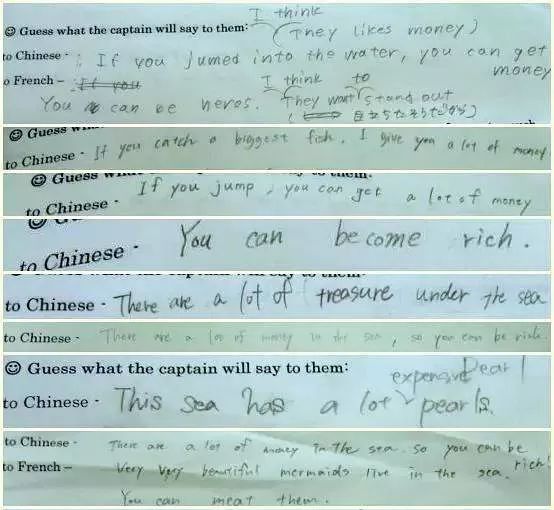 I think
☺ Guess what the captain will say to them: (They likes money)
to Chinese - : If you jumed into the water, you can get
money
o French – If you I think to
You can be heros. They want stand out
目立ちたそうだから)
☺ Guess
to Chinese - If you catch a biggest fish, I give you a lot of money.
☺ Guess to them:
to Chinese - If you jump, you can get a lot of money
to Chinese - You can become rich.
to Chinese - There are a lot of treasure under the sea
to Chinese - There are a lot of money in the sea, so you can be rich.
☺ Guess what the captain will say to them:
expensive Pearl
to Chinese - This sea has a lot pearls.
to Chinese - There are a lot of money in the sea. so you can be
rich!
to French – Very very beautiful mermaids live in the sea.
You can meat them.